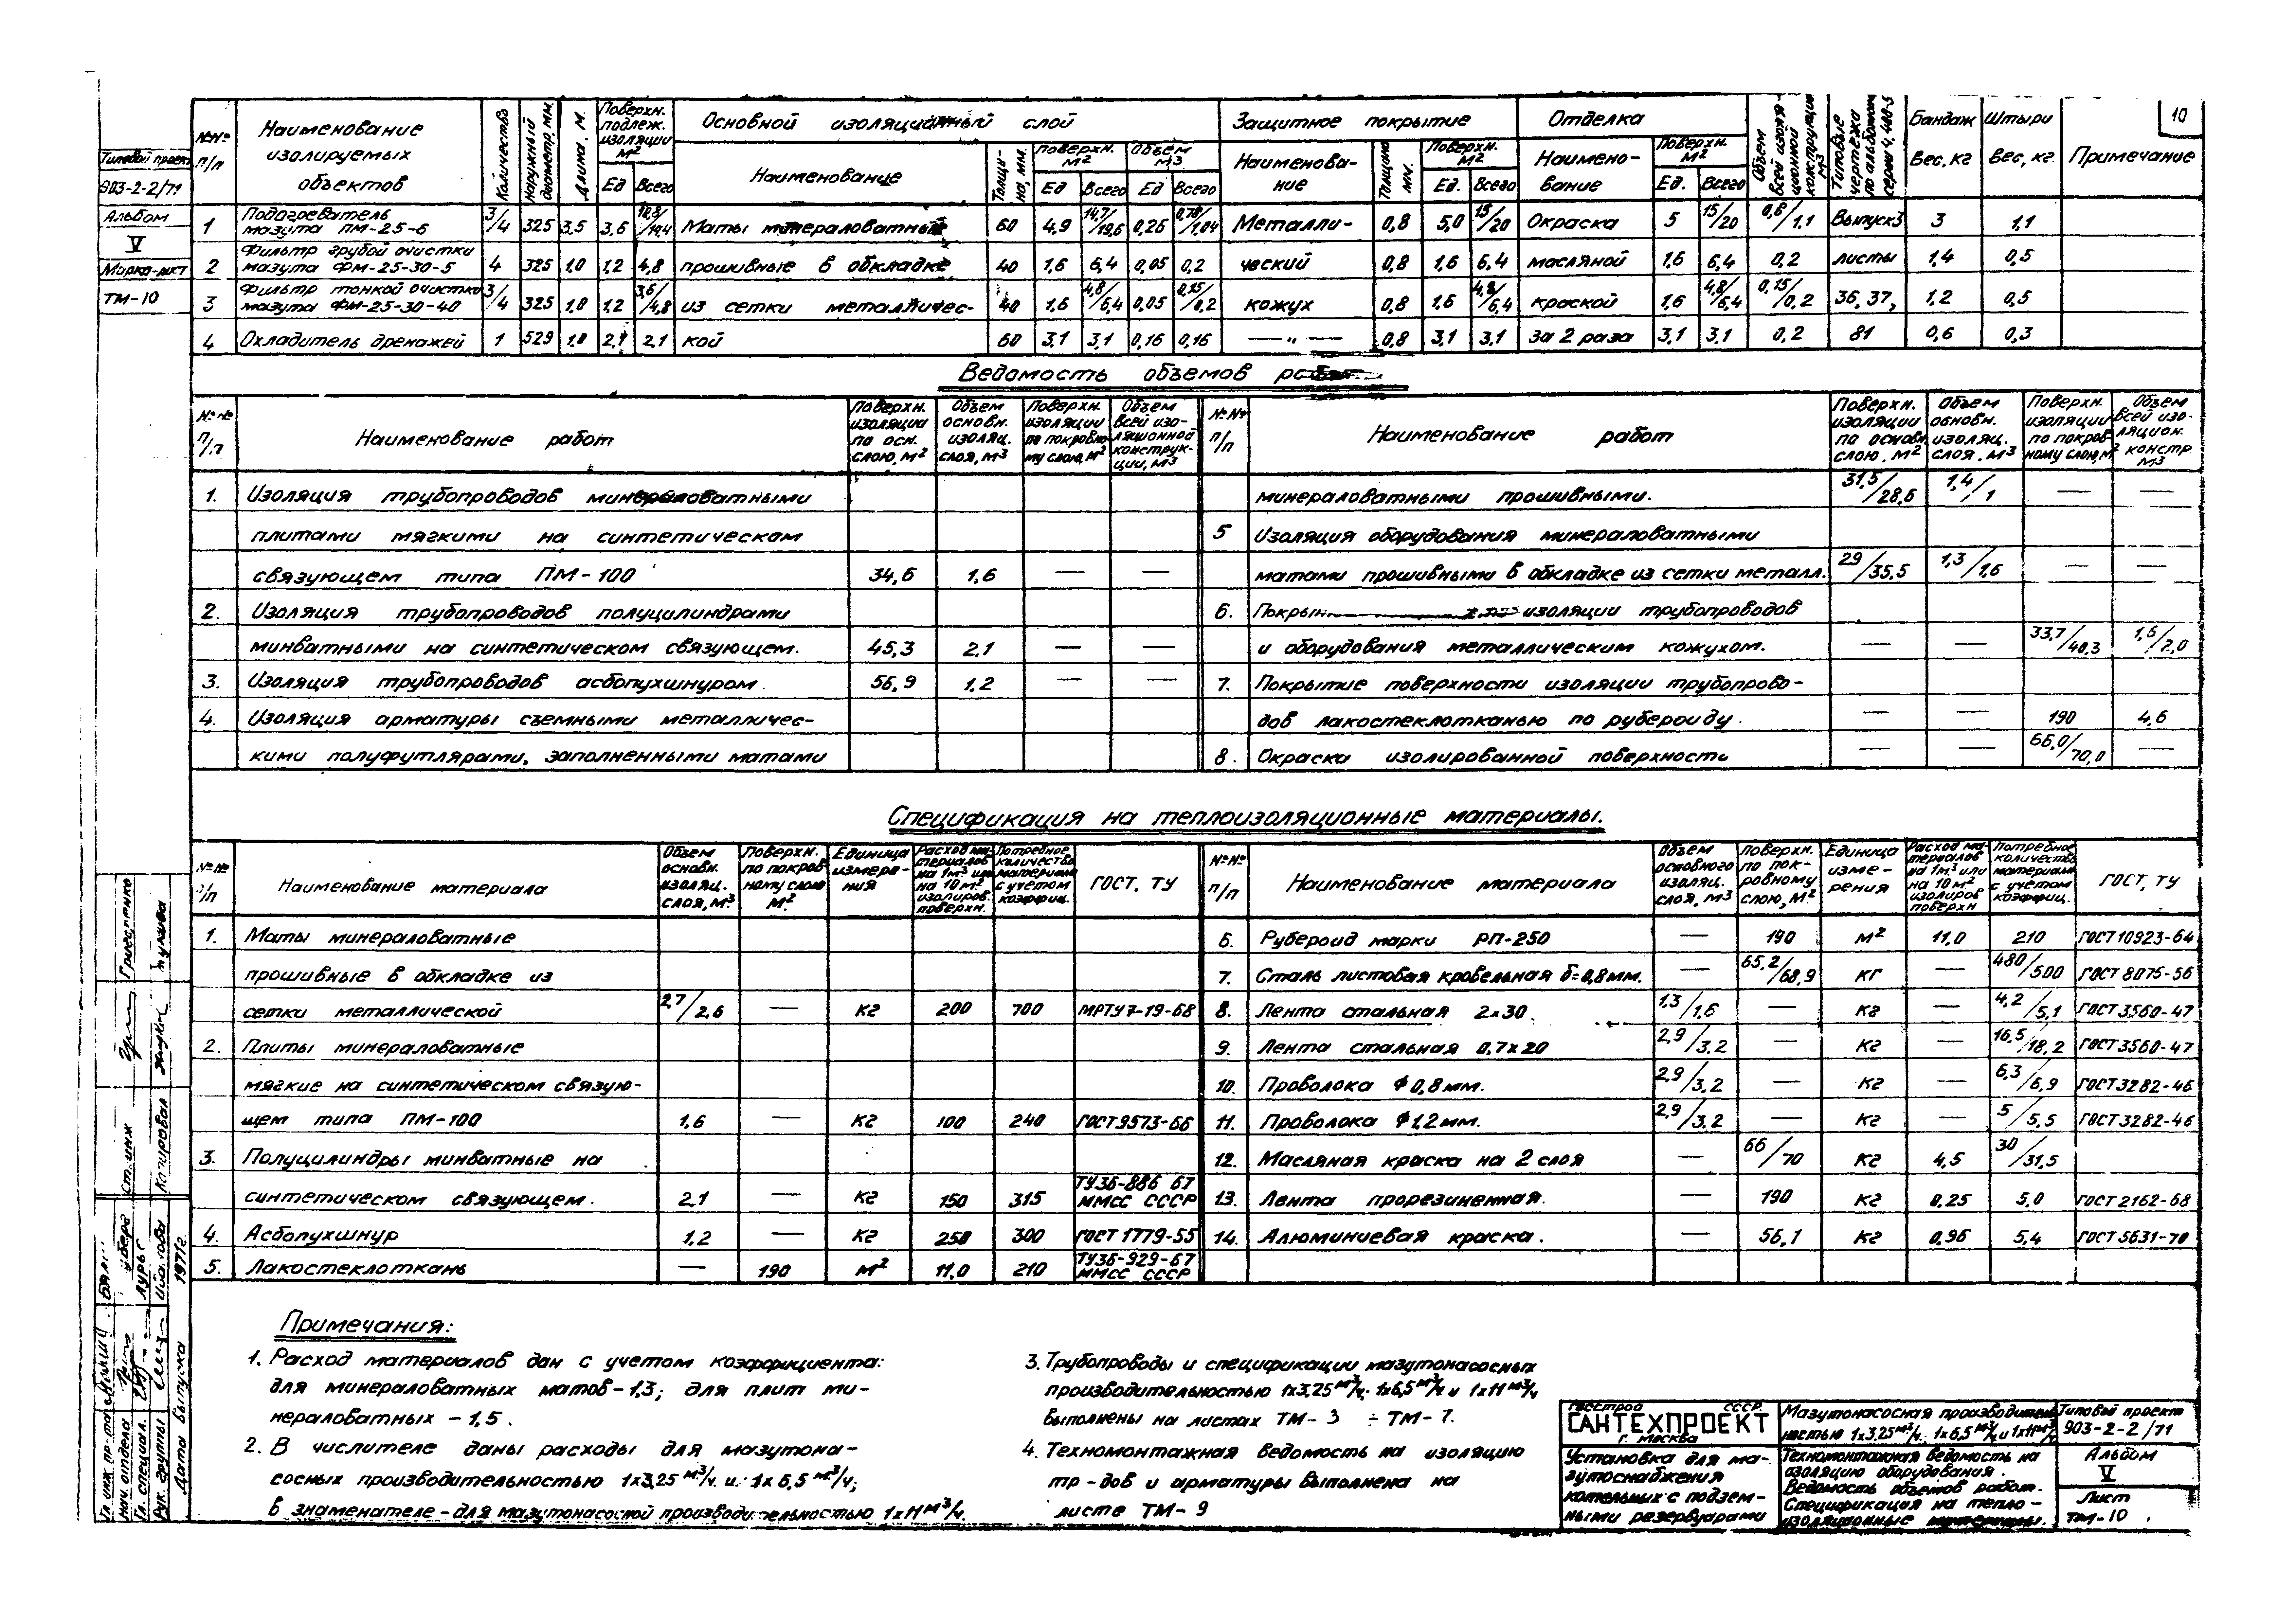 10
Типовой проект
903-2-2/71
Альбом
V
Марка-лист
ТМ-10
№№ п/п
Наименование изолируемых объектов
Количество
Наружный диаметр, мм.
Длина, м.
Поверхн. подлеж. изоляции м²
Ед Всего
Основной изоляционный слой
Наименование
Толщина, мм.
Поверхн. м²
Ед Всего
Объем м³
Ед Всего
Защитное покрытие
Наименование
Толщина мм.
Поверхн. м²
Ед. Всего
Отделка
Наименование
Поверхн. м²
Ед. Всего
Объем всей изоляционной конструкции м³
Типовые чертежи по альбомам серии 4.400-5
Бандаж Вес, кг
Штыри Вес, кг
Примечание
1 Подогреватель мазута ПМ-25-6 3/4 325 3,5 3,6 10,8/14,4 Маты минераловатные 60 4,9 14,7/19,6 0,26 0,78/1,04 Металли- 0,8 5,0 15/20 Окраска 5 15/20 0,8/1,1 Выпуск 3 3 1,1
2 Фильтр грубой очистки мазута ФМ-25-30-5 4 325 1,0 1,2 4,8 прошивные в обкладке 40 1,6 6,4 0,05 0,2 ческий 0,8 1,6 6,4 масляной 1,6 6,4 0,2 листы 1,4 0,5
3 Фильтр тонкой очистки мазута ФМ-25-30-40 3/4 325 1,0 1,2 3,6/4,8 из сетки металличес- 40 1,6 4,8/6,4 0,05 0,15/0,2 кожух 0,8 1,6 4,8/6,4 краской 1,6 4,8/6,4 0,15/0,2 36, 37, 1,2 0,5
4 Охладитель дренажей 1 529 1,0 2,1 2,1 кой 60 3,1 3,1 0,16 0,16 — „ — 0,8 3,1 3,1 за 2 раза 3,1 3,1 0,2 81 0,6 0,3
Ведомость объемов работ
№№ п/п
Наименование работ
Поверхн. изоляции по осн. слою, м²
Объем основн. изоляц. слоя, м³
Поверхн. изоляции по покровному слою, м²
Объем всей изоляционной конструкции, м³
1. Изоляция трубопроводов минераловатными
плитами мягкими на синтетическом
связующем типа ПМ-100 34,6 1,6 — —
2. Изоляция трубопроводов полуцилиндрами
минватными на синтетическом связующем. 45,3 2.1 — —
3. Изоляция трубопроводов асбопухшнуром. 56,9 1,2 — —
4. Изоляция арматуры съемными металличес-
кими полуфутлярами, заполненными матами
№№ п/п
Наименование работ
Поверхн. изоляции по основн. слою, м²
Объем основн. изоляц. слоя, м³
Поверхн. изоляции по покровному слою, м²
Объем всей изоляцион. констр. м³
минераловатными прошивными. 31,5/28,6 1,4/1 — —
5 Изоляция оборудования минераловатными
матами прошивными в обкладке из сетки металл. 29/35,5 1,3/1,6 — —
6. изоляции трубопроводов
и оборудования металлическим кожухом. — — 33,7/40,3 1,6/2,0
7. Покрытие поверхности изоляции трубопрово-
дов лакостеклотканью по рубероиду. — — 190 4,6
8. Окраска изолированной поверхности — — 66,0/70,0 —
Спецификация на теплоизоляционные материалы.
№№ п/п
Наименование материала
Объем основн. изоляц. слоя, м³
Поверхн. по покровному слою м²
Единица измерения
Расход материалов на 1м³ или на 10 м² изолиров. поверхн.
Потребное количество материала с учетом коэффиц.
ГОСТ, ТУ
1. Маты минераловатные
прошивные в обкладке из
сетки металлической 2,7/2,6 — кг 200 700 МРТУ7-19-68
2. Плиты минераловатные
мягкие на синтетическом связую-
щем типа ПМ-100 1,6 — кг 100 240 ГОСТ 9573-66
3. Полуцилиндры минватные на
синтетическом связующем. 2.1 — кг 150 315 ТУ36-886 67 ММСС СССР
4. Асбопухшнур 1,2 — кг 250 300 ГОСТ 1779-55
5. Лакостеклоткань — 190 м² 11,0 210 ТУ36-929-67 ММСС СССР
№№ п/п
Наименование материала
Объем основного изоляц. слоя, м³
Поверхн. по покровному слою, м²
Единица измерения
Расход материалов на 1м³ или на 10 м² изолиров поверхн
Потребное количество материала с учетом коэффиц.
ГОСТ, ТУ
6. Рубероид марки РП-250 — 190 м² 11,0 210 ГОСТ 10923-64
7. Сталь листовая кровельная δ=0,8мм. — 65,2/68,9 кг — 480/500 ГОСТ 8075-56
8. Лента стальная 2×30. 1,3/1,6 — кг — 4,2/5,1 ГОСТ 3560-47
9. Лента стальная 0,7×20 2,9/3,2 — кг — 16,5/18,2 ГОСТ 3560-47
10. Проволока Φ0,8мм. 2,9/3,2 — кг — 6,3/6,9 ГОСТ 3282-46
11. Проволока Φ1,2мм. 2,9/3,2 — кг — 5/5,5 ГОСТ 3282-46
12. Масляная краска на 2 слоя — 66/70 кг 4,5 30/31,5
13. Лента прорезиненная. — 190 кг 0,25 5,0 ГОСТ 2162-68
14. Алюминиевая краска. — 56,1 кг 0,96 5,4 ГОСТ 5631-70
Примечания:
1. Расход материалов дан с учетом коэффициента:
для минераловатных матов-1,3; для плит ми-
нераловатных - 1,5.
2. В числителе даны расходы для мазутона-
сосных производительностью 1×3,25 м³/ч. и 1×6,5 м³/ч;
в знаменателе - для мазутонасосной производительностью 1×11 м³/ч.
3. Трубопроводы и спецификации мазутонасосных
производительностью 1×3,25 м³/ч; 1×6,5 м³/ч и 1×11 м³/ч
выполнены на листах ТМ-3 ÷ ТМ-7.
4. Техномонтажная ведомость на изоляцию
тр-дов и арматуры выполнена на
листе ТМ-9
Госстрой СССР.
САНТЕХПРОЕКТ
г. Москва
Установка для ма-
зутоснабжения
котельных с подзем-
ными резервуарами
Мазутонасосная производитель
ностью 1×3,25 м³/ч.; 1×6,5 м³/ч. и 1×11 м³/ч
Техномонтажная ведомость на
изоляцию оборудования.
Ведомость объемов работ.
Спецификация на тепло-
изоляционные материалы.
Типовой проект
903-2-2/71
Альбом
V
Лист
ТМ-10
Гл. инж. пр-та
Нач. отдела
Гл. специал.
Рук. группы
Дата выпуска 1971г.
Ст. инж
Копировал